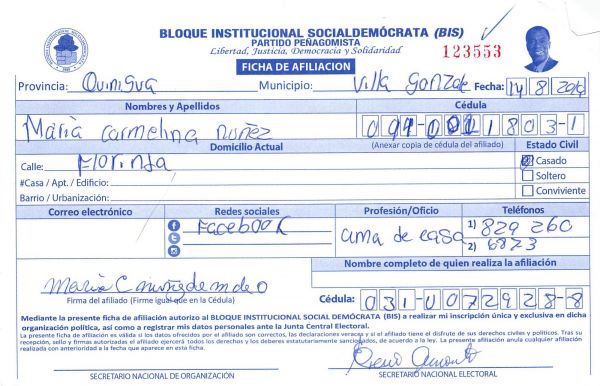 BLOQUE INSTITUCIONAL SOCIALDEMÓCRATA (BIS)
PARTIDO PEÑAGOMISTA
Libertad, Justicia, Democracia y Solidaridad
123553
FICHA DE AFILIACION
Provincia: Municipio: Villa Gonzale Fecha: 14/8/2014
Nombres y Apellidos Cédula
María Carmelina Nuñez 1803-1
Domicilio Actual (Anexar copia de cédula del afiliado) Estado Civil
Calle: Casado
#Casa / Apt. / Edificio: Soltero
Barrio / Urbanización: Conviviente
Correo electrónico Redes sociales Profesión/Oficio Teléfonos
Facebook ama de casa 1) 829 260
2) 6823
Nombre completo de quien realiza la afiliación
Firma del afiliado (Firme igual que en la Cédula) Cédula: 031-0072928-8
Mediante la presente ficha de afiliación autorizo al BLOQUE INSTITUCIONAL SOCIAL DEMÓCRATA (BIS) a realizar mi inscripción única y exclusiva en dicha
organización política, así como a registrar mis datos personales ante la Junta Central Electoral.
La presente ficha de afiliación es válida si los datos ofrecidos por el afiliado son correctos, las declaraciones veraces y si el afiliado tiene el disfrute de sus derechos civiles y políticos. Tras su
recepción, sello y firmas autorizadas el afiliado ejercerá todos los derechos y los deberes estatutariamente sancionados, de acuerdo a la ley. La presente afiliación anula cualquier afiliación
realizada con anterioridad a la fecha que aparece en esta ficha.
SECRETARIO NACIONAL DE ORGANIZACIÓN SECRETARIO NACIONAL ELECTORAL